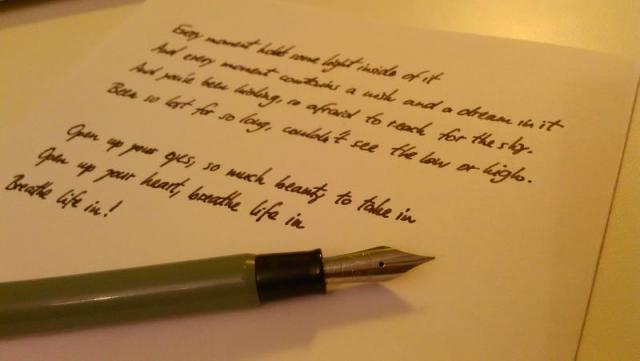 Every moment holds some light inside of it
And every moment contains a wish and a dream in it
And you've been hiding, so afraid to reach for the sky.
Been so lost for so long, couldn't see the low or highs.
Open up your eyes, so much beauty to take in
Open up your heart, breathe life in
Breathe life in!